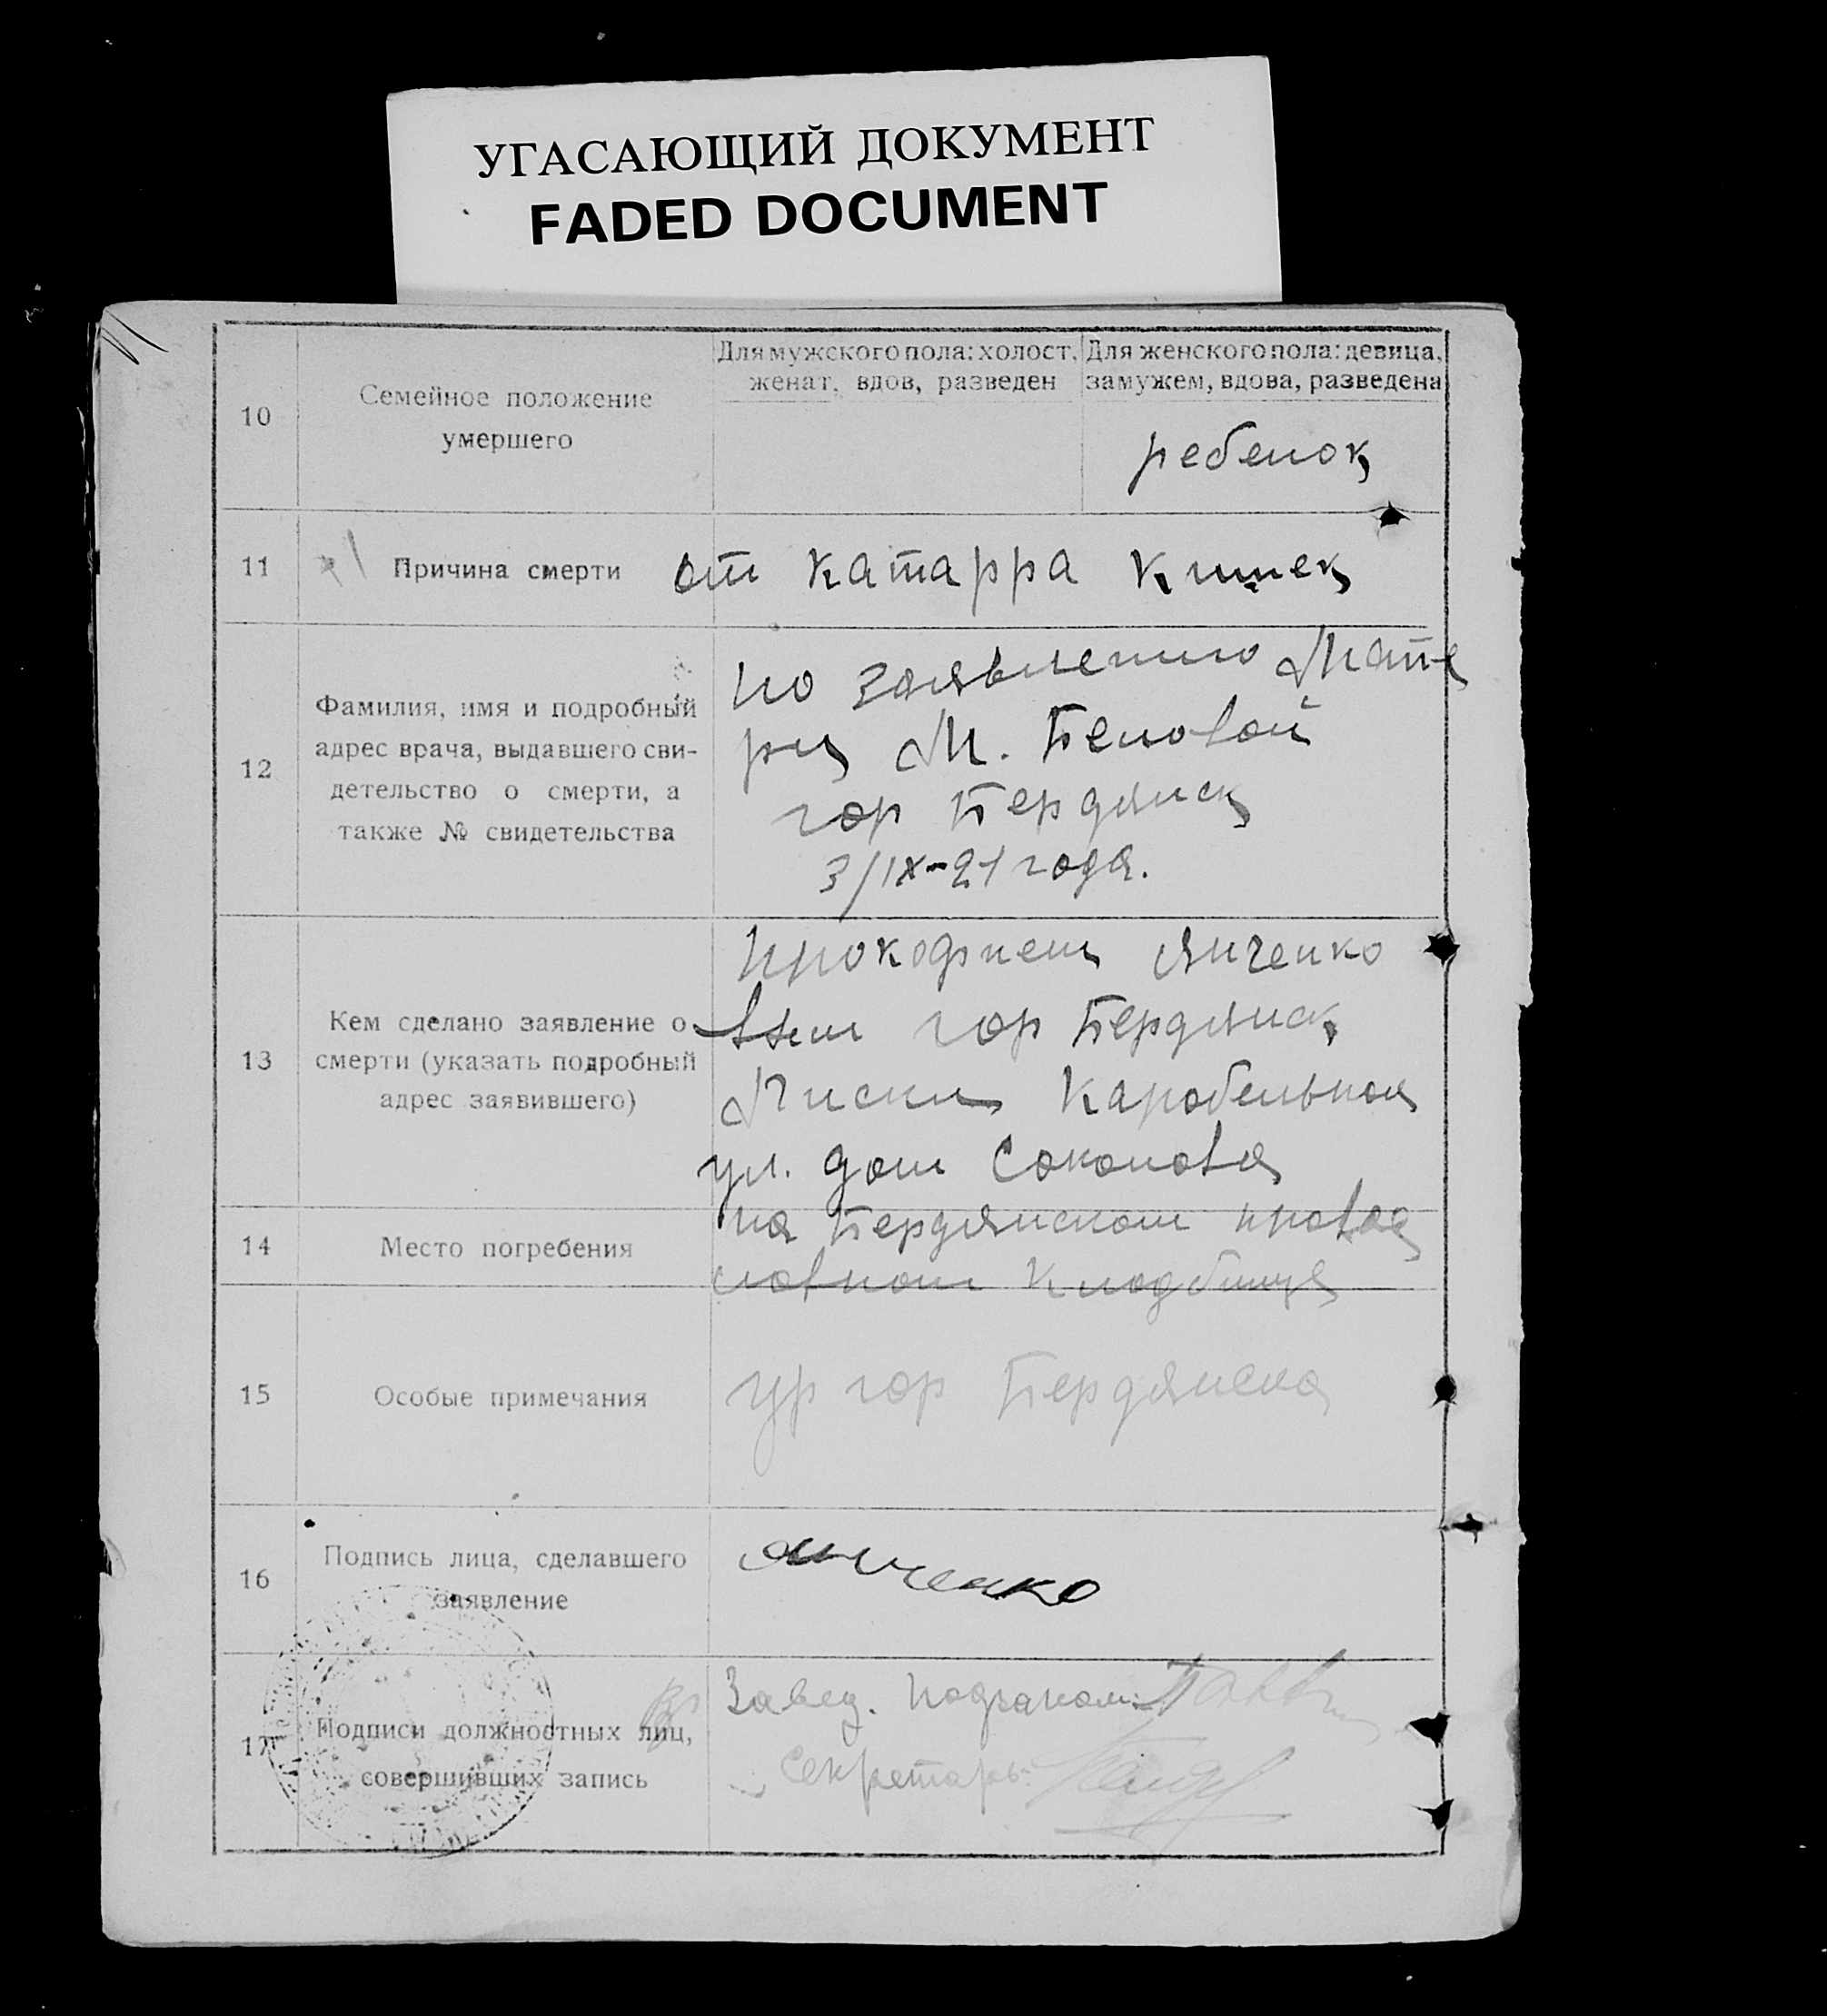 УГАСАЮЩИЙ ДОКУМЕНТ
FADED DOCUMENT
10
Семейное положение
умершего
Для мужского пола: холост,
женат, вдов, разведен
Для женского пола: девица,
замужем, вдова, разведена
ребенок
11
Причина смерти
от катарра кишек
12
Фамилия, имя и подробный
адрес врача, выдавшего сви-
детельство о смерти, а
также № свидетельства
по заявлению Мате
ри М. Беловой
гор Бердянск
3/IX-21 года.
13
Кем сделано заявление о
смерти (указать подробный
адрес заявившего)
Прокофием Янченко
гор Бердянск
Лиски Карабельная
ул. дом Соколова
14
Место погребения
на Бердянском правос
лавном кладбище
15
Особые примечания
гр гор Бердянска
16
Подпись лица, сделавшего
заявление
Янченко
17
Подписи должностных лиц,
совершивших запись
Завед. Подзагом:
Секретарь: